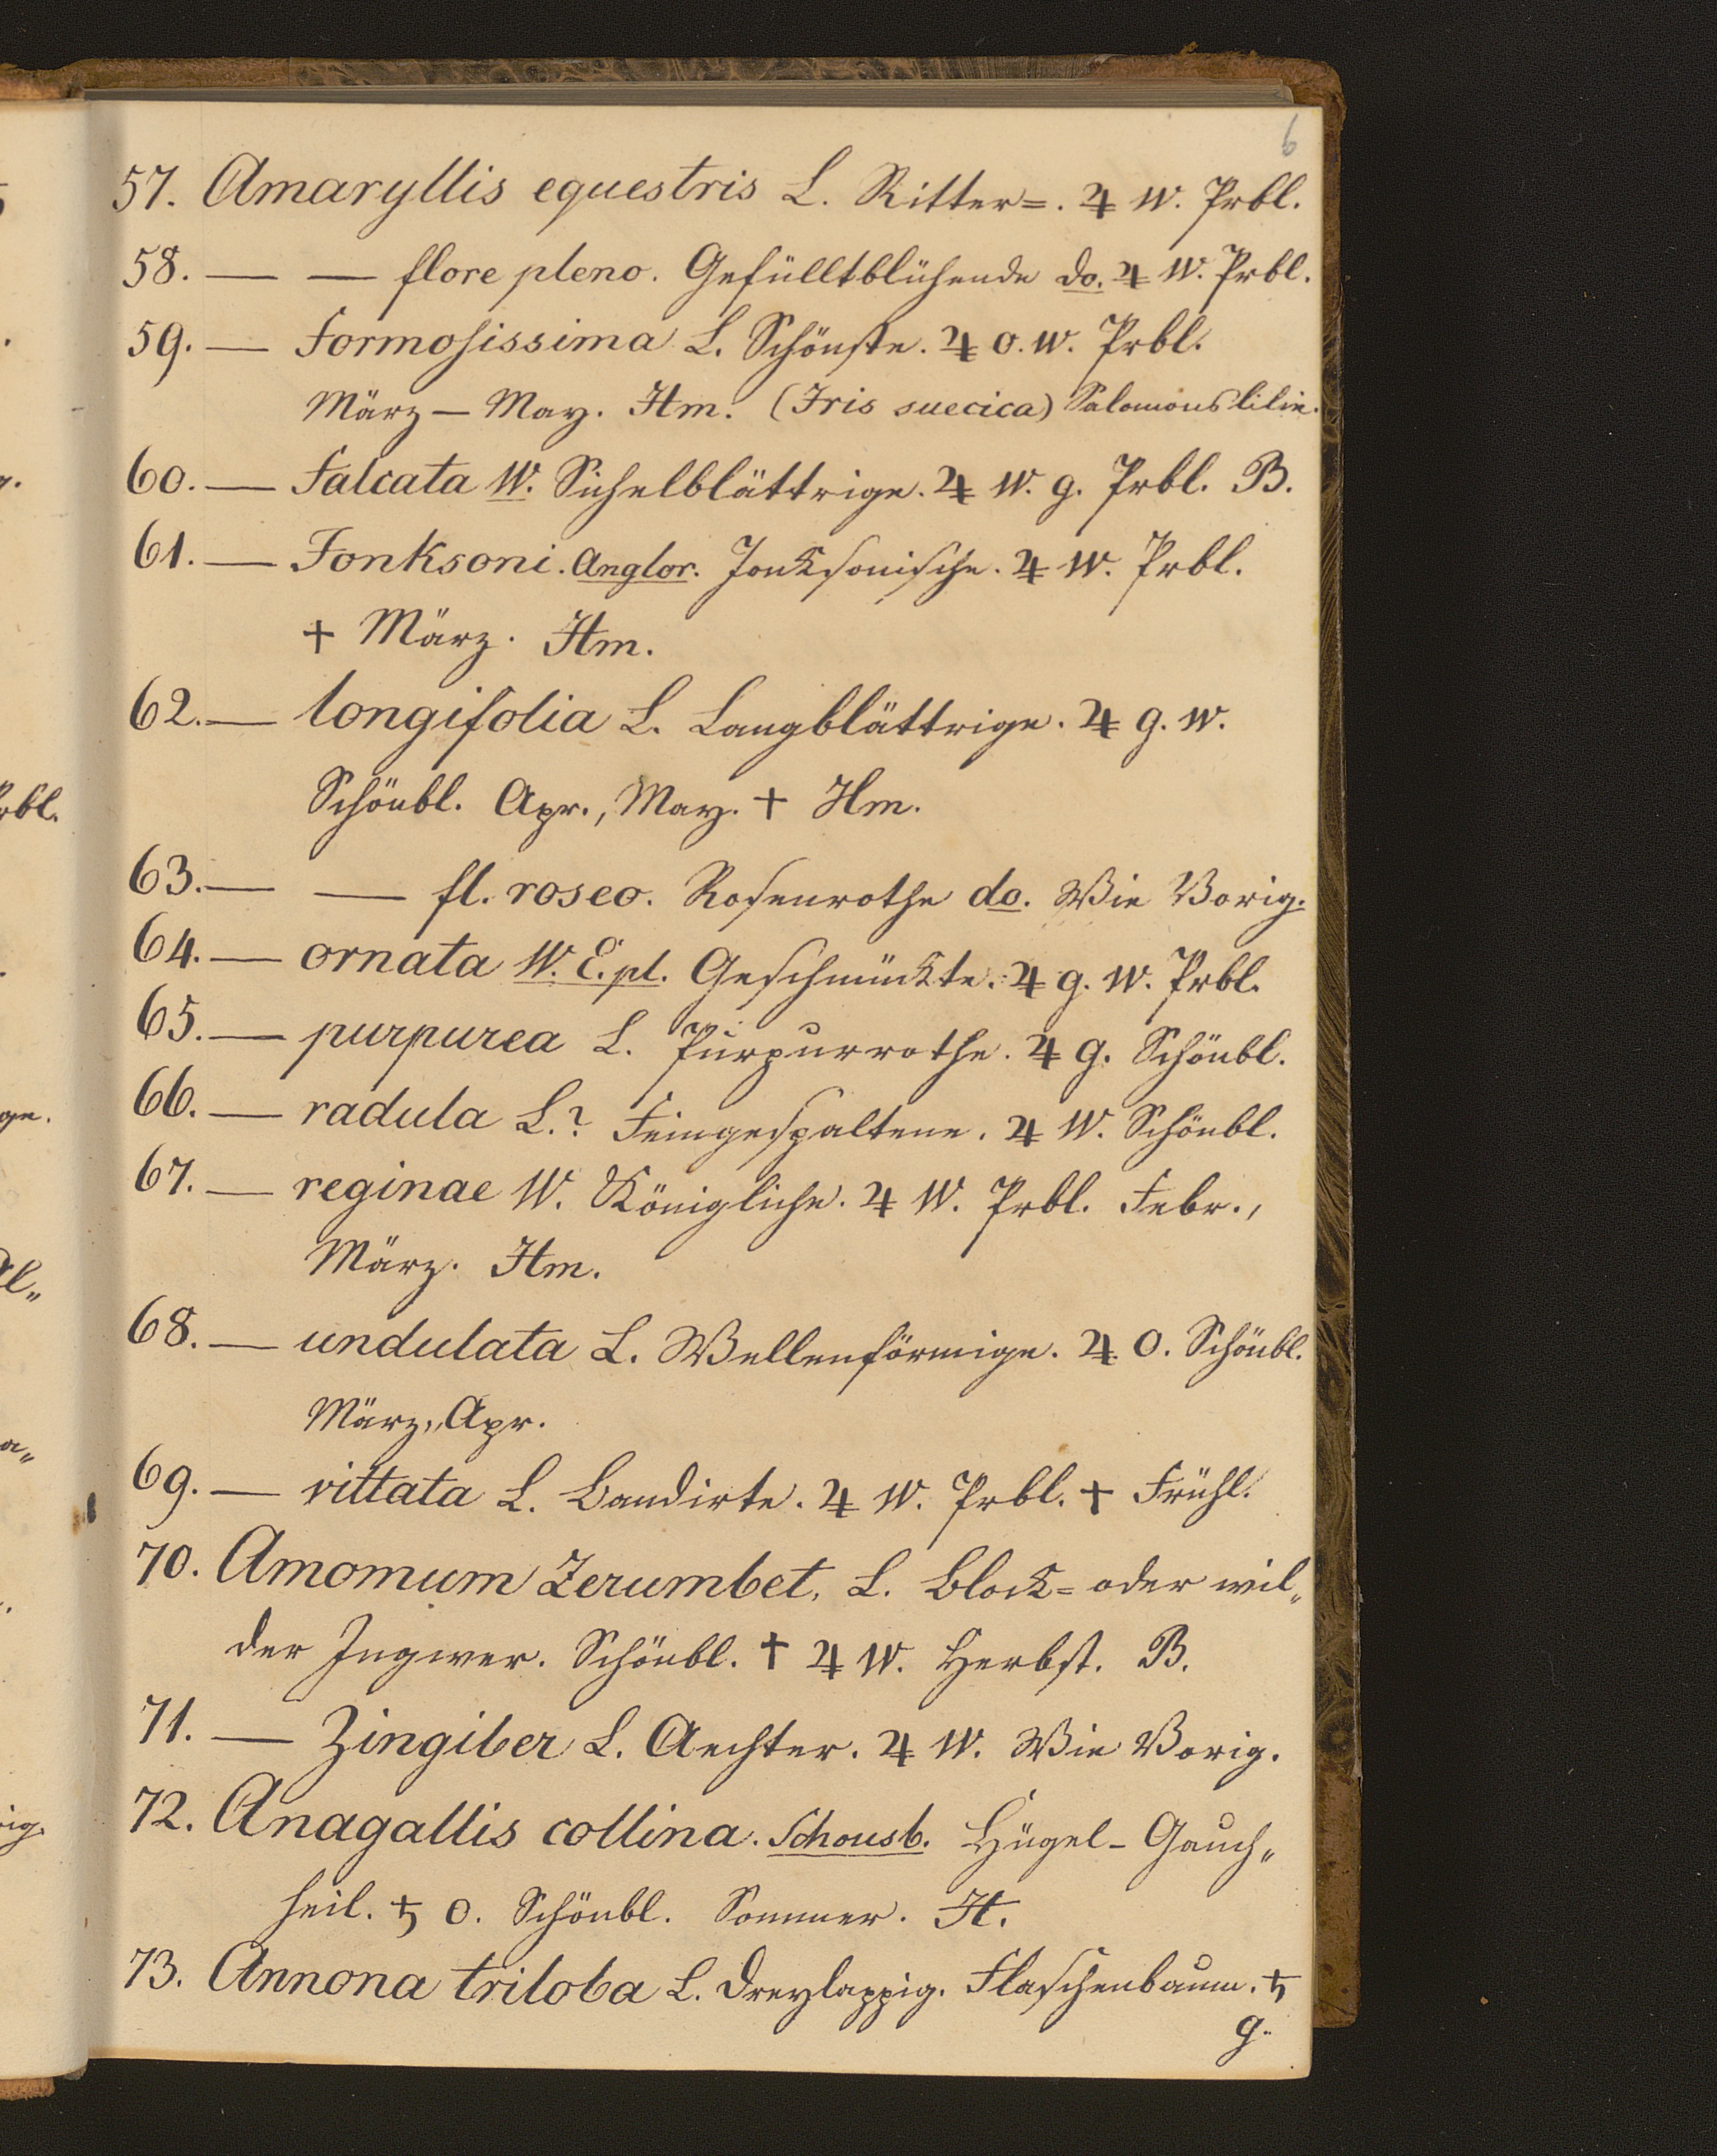 6
57. Amaryllis equestris L. Ritter=. ♃ W. Prbl.
58. — — flore pleno. Gefülltblühende do. ♃ W. Prbl.
59. — formosissima L. Schönste. ♃ O. W. Prbl.
März — May. Hm. (Iris suecica) Salomonslilie.
60. — falcata W. Sichelblättrige. ♃ W. g. Prbl. B.
61. — Jonksoni. Anglor. Jonksonische. ♃ W. Prbl.
+ März. Hm.
62. — longifolia L. Langblättrige. ♃ g. W.
Schönbl. Apr., May. + Hm.
63. — — fl. roseo. Rosenrothe do. Wie Vorig.
64. — ornata W. E. pl. Geschmückte. ♃ g. W. Prbl.
65. — purpurea L. Purpurrothe. ♃ g. Schönbl.
66. — radula L.? Feingespaltene. ♃ W. Schönbl.
67. — reginae W. Königliche. ♃ W. Prbl. Febr.,
März. Hm.
68. — undulata L. Wellenförmige. ♃ O. Schönbl.
März, Apr.
69. — vittata L. Bandirte. ♃ W. Prbl. + Frühl.
70. Amomum Zerumbet, L. Block= oder wil„
der Ingwer. Schönbl. † ♃ W. Herbst. B.
71. — Zingiber L. Aechter. ♃ W. Wie Vorig.
72. Anagallis collina. Schousb. Hügel-Gauch„
heil. ♄ O. Schönbl. Sommer. H.
73. Annona triloba L. Dreylappig. Flaschenbaum. ♄
g.